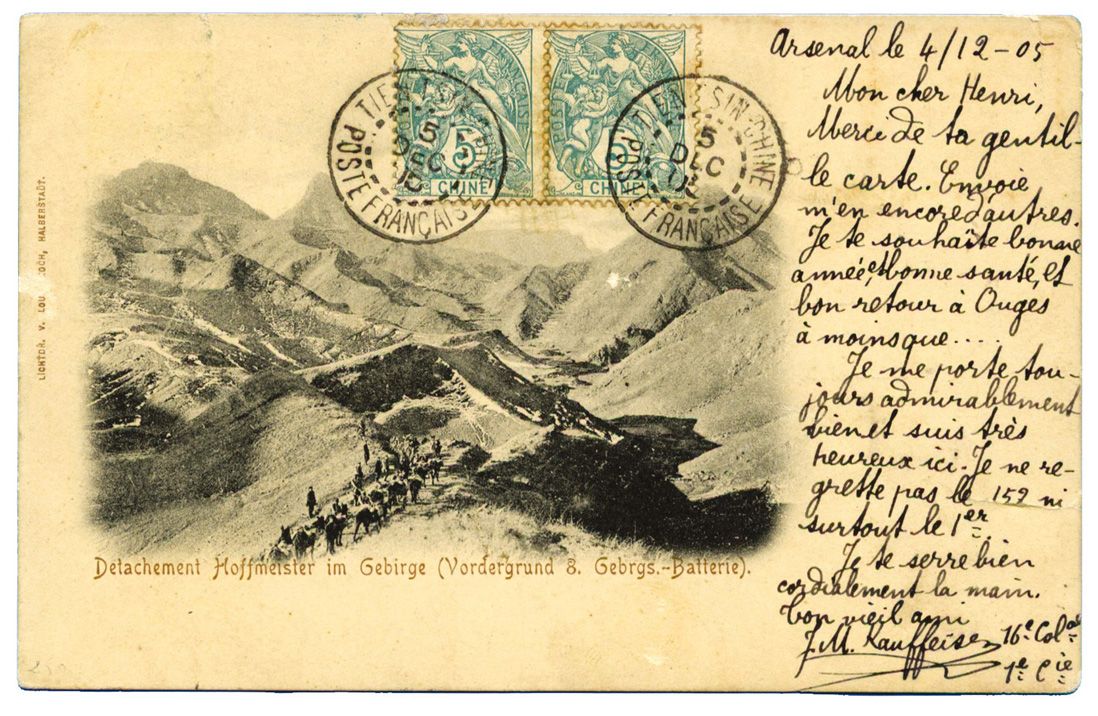 TIEN-TSIN-CHINE
5
DEC
05
POSTE FRANÇAISE
5
CHINE
TIEN-TSIN-CHINE
5
DEC
POSTE FRANÇAISE
5
CHINE
LICHTDR. V. LOU OCH, HALBERSTADT.
Detachement Hoffmeister im Gebirge (Vordergrund 8. Gebrgs.-Batterie).
Arsenal le 4/12-05
Mon cher Henri,
Merci de ta gentil-
le carte. Envoie
m'en encore d'autres.
Je te souhaite bonne
année, et bonne santé, et
bon retour à Ouges
à moins que....
Je me porte tou-
jours admirablement
bien et suis très
heureux ici. Je ne re-
grette pas le 152 ni
surtout le 1er.
Je te serre bien
cordialement la main.
Ton vieil ami
J.M. Kauffeisen 16e Colal
1e Cie